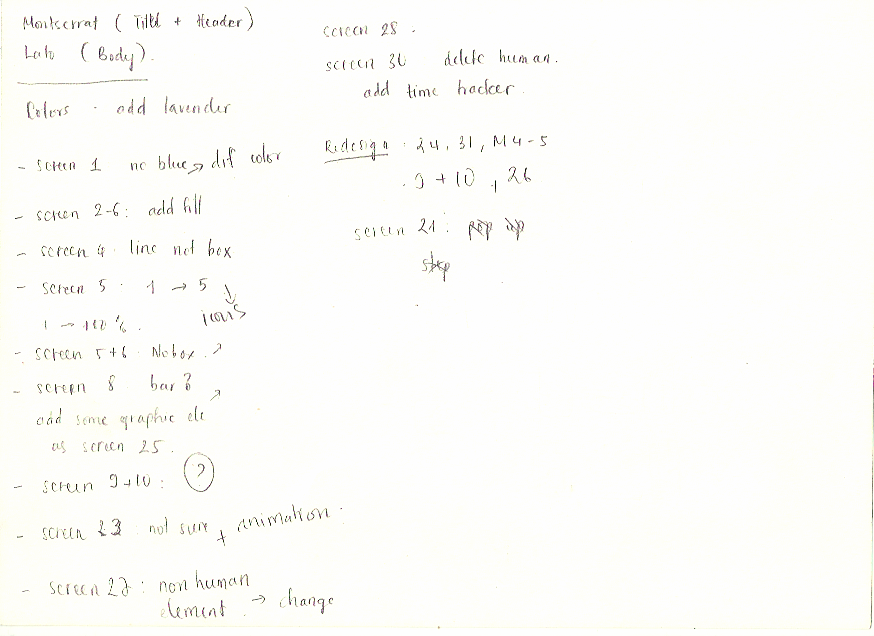 Montserrat ( Titld + Header)
Lato ( Body).
Colors - add lavender
- screen 1 no blue → dif color
- screen 2-6: add fill
- screen 4 . line not box
- screen 5 . 1 → 5
1 → 100%. icons
- screen 5+6 No box.
- screen 8 bar ?
add some graphic ele
as screen 25.
- screen 9+10 : ?
- screen 23 not sure + animation.
- screen 27 : non human
element → change
screen 28 .
screen 36 delete human.
add time hacker.
Redesign . 24, 31, M4-5
. 9 + 10 , 26
screen 21 :